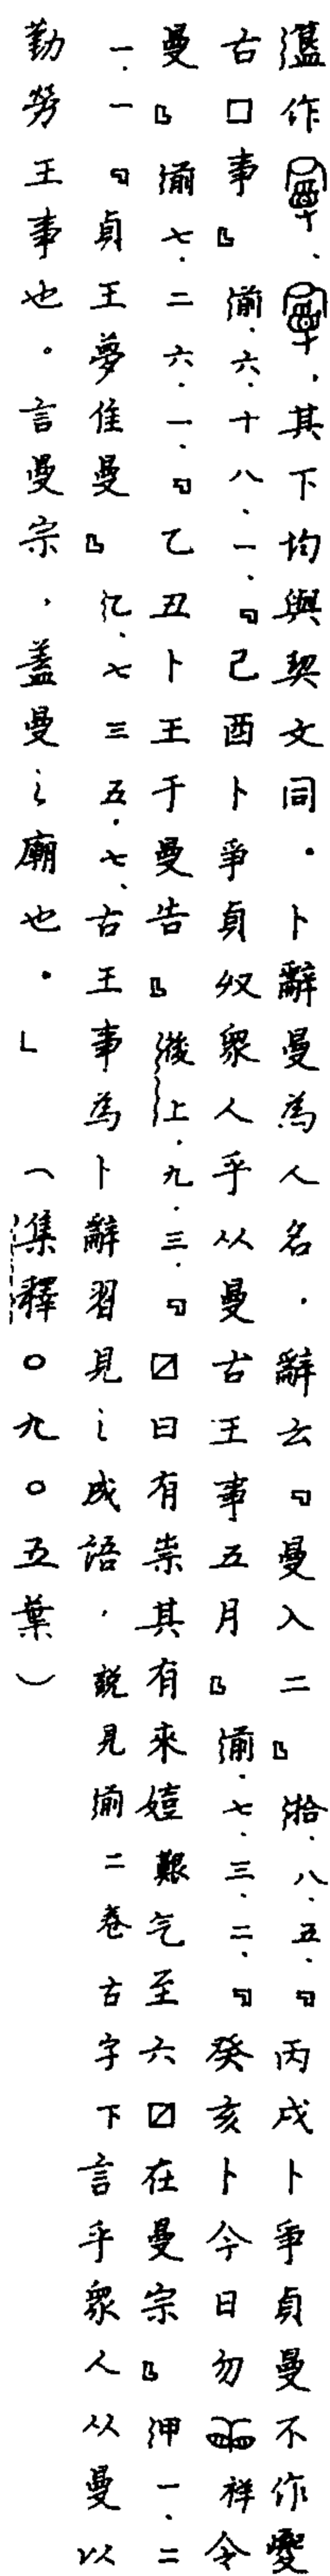 作、，其下均與契文同。卜辭曼為人名，辭云『曼入二』 八、五。『丙戌卜爭貞曼不作
古□事』 前、六、十八、一。『己酉卜爭貞奴眾人乎从曼古王事五月』 前、七、三、二。『癸亥卜今日勿祥令
曼』 前七、二六、一。『乙丑卜王于曼告』 後上、九、三。『☒曰有祟其有來嬉艱气至六☒在曼宗』 一、二
一、一『貞王夢隹曼』 七三五、七、古王事為卜辭習見之成語，說見前二卷古字下言乎眾人从曼以
勤勞王事也。言曼宗，蓋曼之廟也。」（集釋〇九〇五葉）